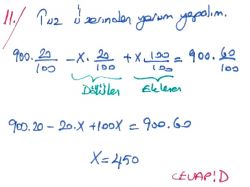 11./ Tuz üzerinden yorum yapalım.
900.20/100 - x.20/100 + x.100/100 = 900.60/100
Dökülen Eklenen
900.20 - 20.x + 100x = 900.60
x = 450
CEVAP: D